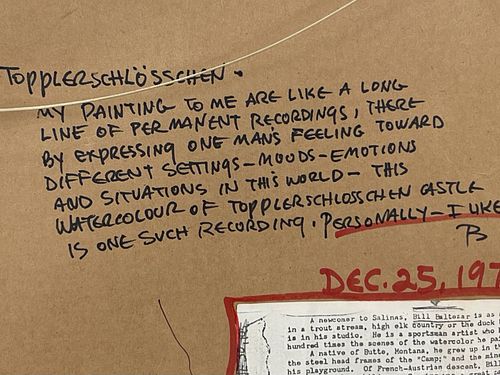 TOPPLERSCHLÖSSCHEN.
MY PAINTING TO ME ARE LIKE A LONG
LINE OF PERMANENT RECORDINGS, THERE
BY EXPRESSING ONE MAN'S FEELING TOWARD
DIFFERENT SETTINGS-MOODS-EMOTIONS
AND SITUATIONS IN THIS WORLD-THIS
WATERCOLOUR OF TOPPLERSCHLOSSCHEN CASTLE
IS ONE SUCH RECORDING. PERSONALLY-I LIKE
B
DEC. 25, 197
A newcomer to Salinas, Bill Baltezar is as
in a trout stream, high elk country or the duck
is in his studio. He is a sportsman artist who
hundred times the scenes of the watercolor he pai
A native of Butte, Montana, he grew up in t
the steel head frames of the "Camp;" and the
his playground. Of French-Austrian descent, Bill